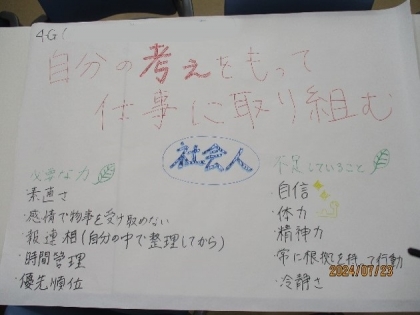 4G
自分の考えをもって
仕事に取り組む
社会人
必要な力
・素直さ
・感情で物事を受け取めない
・報連相(自分の中で整理してから)
・時間管理
・優先順位
不足していること
・自信
・体力
・精神力
・常に根拠を持って行動
・冷静さ
2024/07/23